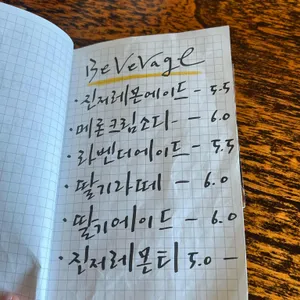 Beverage
· 진저레몬에이드 - 5.5
· 메론크림소다 - 6.0
· 라벤더에이드 - 5.5
· 딸기라떼 - 6.0
· 딸기에이드 - 6.0
· 진저레몬티 5.0 -